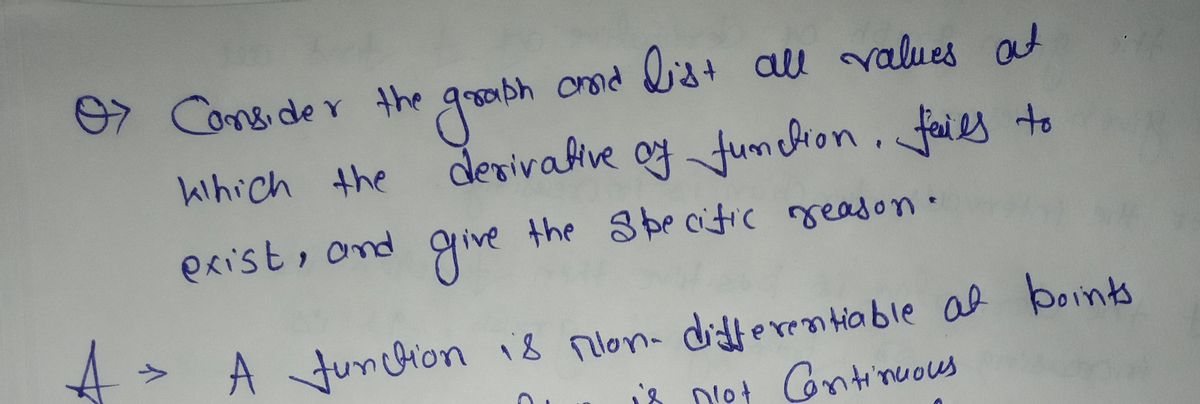 Q> Consider the graph and list all values at
which the derivative of function. fails to
exist, and give the specific reason.
A > A function is Non-differentiable at points
is not Continuous